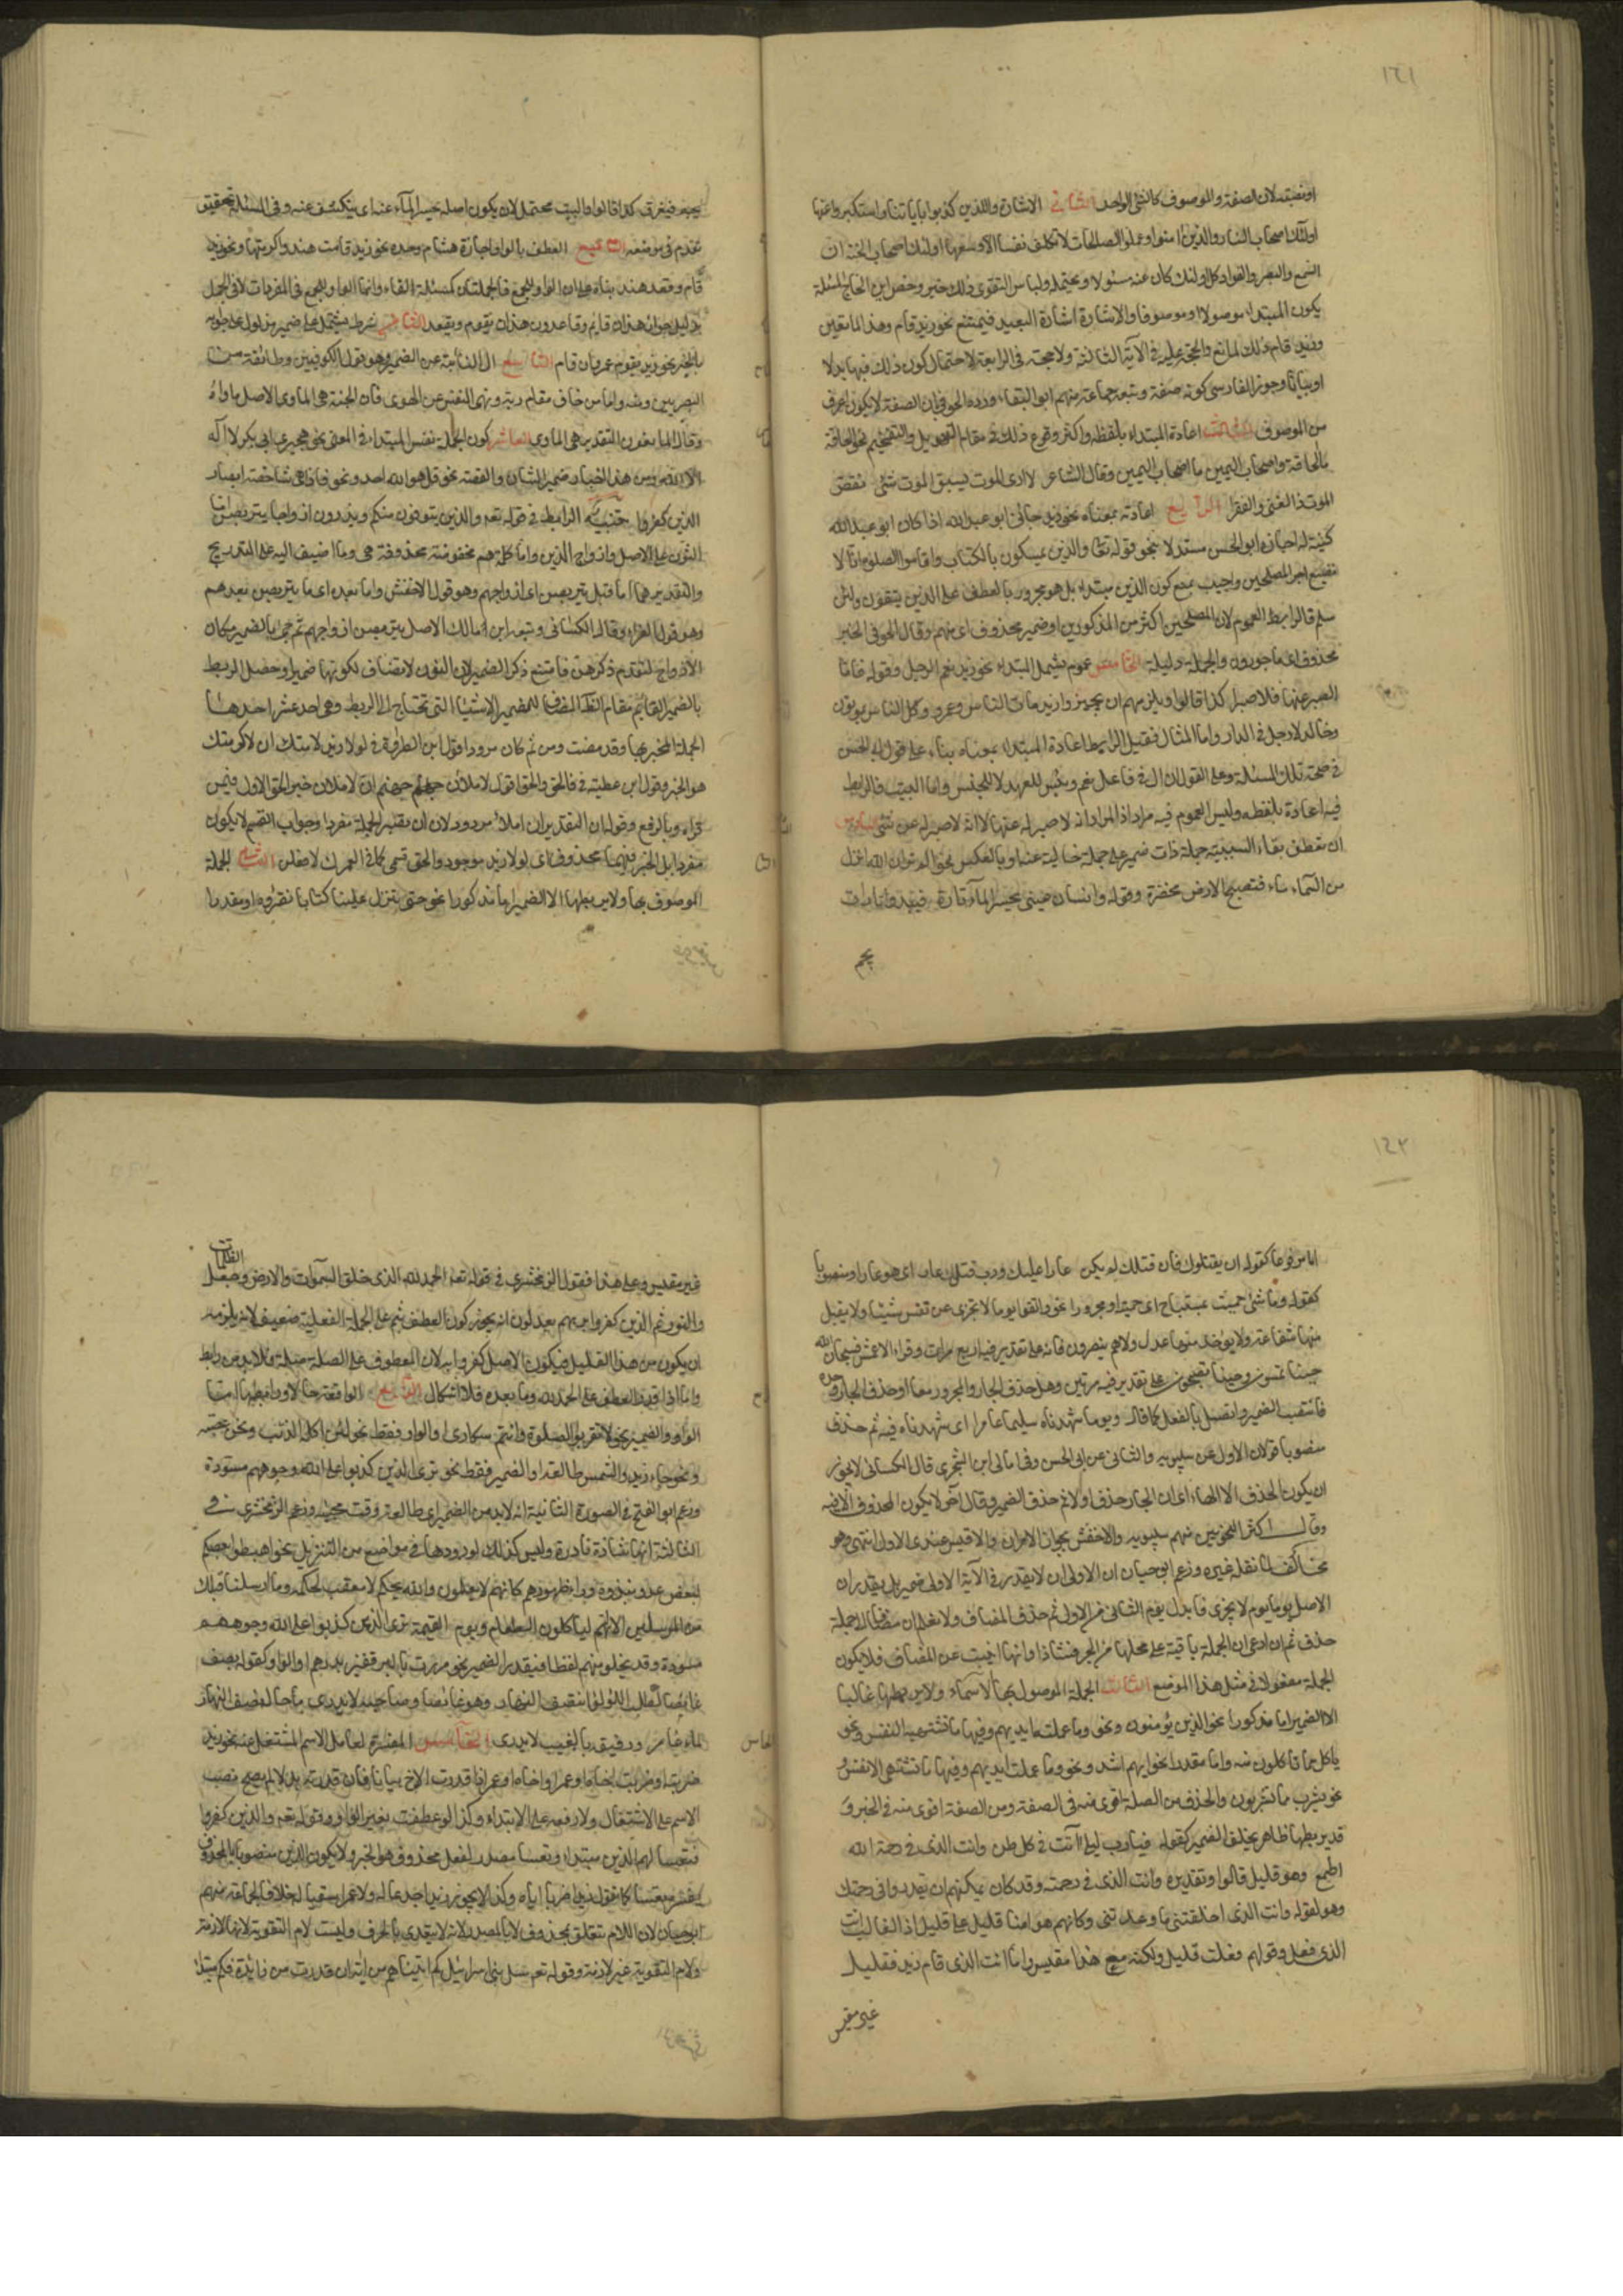 ١٤١
او نصبته لان الصفة والموصوف كالشئ الواحد الثاني الاشارة والذين كذبوا باياتنا واستكبروا عنها
اولئك اصحاب النار والذين امنوا وعملوا الصالحات لا تكلف نفسا الا وسعها اولئك اصحاب الجنة ان
السمع والبصر والفواد كل اولئك كان عنه مسئولا ويحتمله ولباس التقوى ذلك خير وخص ابن الحاج المسئلة
يكون المبتداء موصولا او موصوفا والاشارة اشارة البعيد فيمتنع نحو زيد قام وهذا لمانعين
وزيد قام ذلك لمانع والحجة عليه في الآية الثالثة ولا حجة في الرابعة لاحتمال كون ذلك فيها بدلا
او بيانا وجوز الفارسي كونه صفة وتبعه جماعة منهم ابو البقاء ورده الحوفي بان الصفة لا يكون اعرف
من الموصوف الثالث اعادة المبتداء بلفظه واكثر وقوع ذلك في مقام التهويل والتفخيم نحو الحاقة
ما الحاقة واصحاب اليمين ما اصحاب اليمين وقال الشاعر لا ارى الموت يسبق الموت شئ نغص
الموت ذا الغنى والفقرا الرابع اعادته بمعناه نحو زيد جائني ابو عبد الله اذا كان ابو عبد الله
كنية له اجازه ابو الحسن مستدلا بنحو قوله تعا والذين يمسكون بالكتاب واقاموا الصلوة انا لا
نضيع اجر المصلحين واجيب بمنع كون الذين مبتداء بل هو مجرور بالعطف على الذين يتقون ولئن
سلم فالرابط العموم لان المصلحين اكثر من المذكورين او ضمير محذوف اى منهم وقال الحوفي الخبر
محذوف اى ماجورون والجملة دليله الخامس عموم يشمل المبتداء نحو زيد نعم الرجل وقوله فاما
الصبر عنها فلا صبرا كذا قالوا ويلزمهم ان يجيزوا زيد مات الناس وعمرو كل الناس يموتون
وخالد لا رجل في الدار واما المثال فقيل الرابط اعادة المبتداء بمعناه بناء على قول ابي الحسن
في صحة تلك المسئلة وعلى القول ان ال في فاعل نعم وبئس للعهد لا للجنس واما البيت فالرابط
فيه اعادة بلفظه وليس العموم فيه مراد اذ المراد انه لا صبر له عنها لا انه لا صبر له عن شئ السادس
ان يعطف بفاء السببية جملة ذات ضمير على جملة خالية عنها وبالعكس نحو الم تر ان الله انزل
من السماء ماء فتصبح الارض مخضرة وقوله وانسان عيني يحسر الماء تارة فيبدو وتارات
يجم
يجم فيغرق كذا قالوا والبيت محتمل لان يكون اصله يحسر الماء عنه اى ينكشف عنه وفي المسئلة تحقيق
تقدم في موضعه السابع العطف بالواو اجازه هشام وحده نحو زيد قامت هند واكرمتها ونحو زيد
قام وقعد هند بناء على ان الواو للجمع فالجملتان كمسئلة الفاء وانما الواو للجمع في المفردات لا في الجمل
بدليل جواز هذان قائم وقاعد دون هذان يقوم ويقعد الثامن شرط يشتمل على ضمير مدلول على جوابه
بالخبر نحو زيد يقوم عمرو ان قام التاسع ال النائبة عن الضمير وهو قول الكوفيين وطائفة من
البصريين ومنه واما من خاف مقام ربه ونهى النفس عن الهوى فان الجنة هى الماوى الاصل ماواه
وقال المانعون التقدير هى الماوى له العاشر كون الجملة نفس المبتداء في المعنى نحو هجيري ابي بكر لا اله
الا الله ومن هذا اخبار ضمير الشان والقصة نحو قل هو الله احد ونحو فاذا هى شاخصة ابصار
الذين كفروا تنبيه الرابط في قوله تعه والذين يتوفون منكم ويذرون ازواجا يتربصن اما
النون على الاصل وازواج الذين واما كلمة هم مخفوضة محذوفة هى وما اضيف اليه على التدريج
والتقدير هما اما قبل يتربصن اى ازواجهم وهو قول الاخفش واما بعده اى ما يتربصن بعدهم
وهو قول الفراء وقال الكسائي وتبعه ابن مالك الاصل يتربصن ازواجهم ثم جئ بالضمير مكان
الازواج لتقدم ذكرهن فامتنع ذكر الضمير لان النون لا تضاف لكونها ضميرا وحصل الربط
بالضمير القائم مقام الظاهر المضاف للضمير الاشياء التي تحتاج الى الربط وهى احد عشر احدها
الجملة المخبر بها وقد مضت ومن ثم كان مردودا قول ابن الطراوة في لولا زيد لاتيتك ان لاكرمتك
هو الخبر وقول ابن عطية في فالحق والحق اقول لاملأن جهنم ان لاملان خبر الحق الاول فيمن
قراه وبالرفع وقوله ان التقدير ان املأ مردود لان ان يصير الجملة مفردا وجواب القسم لا يكون
مفردا بل الخبر فيهما محذوف اى لولا زيد موجود والحق قسمي كما في لعمرك لافعلن الثاني الجملة
الموصوف بها ولا يربطها الا الضمير اما مذكورا نحو حتى تنزل علينا كتابا نقرؤه او مقدرا
١٤٢
اما مرفوعا كقوله ان يقتلوك فان قتلك لم يكن عارا عليك ورب قتل عار اى هو عار او منصوبا
كقوله وما شئ حميت بمستباح اى حميته او مجرورا نحو واتقوا يوما لا تجزى نفس عن نفس شيئا ولا يقبل
منها شفاعة ولا يؤخذ منها عدل ولا هم ينصرون فانه على تقدير فيه اربع مرات وقراء الاعمش فسبحان الله
حينا تمسون وحينا تصبحون على تقدير فيه مرتين وهل حذف الجار والمجرور معا او حذف الجار وحده
فانتصب الضمير واتصل بالفعل كما قال ويوما شهدناه سليما عامرا اى شهدنا فيه ثم حذف
منصوبا قولان الاول عن سيبويه والثاني عن ابي الحسن وفي امالي ابن الشجري قال الكسائي لا يجوز
ان يكون المحذوف الا الهاء اى ان الجار حذف اولا ثم حذف الضمير وقال آخر لا يكون المحذوف الا فيه
وقال اكثر النحويين منهم سيبويه والاخفش يجوز الامران والاقيس عندى الاول انتهى وهو
مخالف لما نقله غيره وزعم ابو حيان ان الاولى ان لا يقدر في الآية الاولى ضمير بل يقدر ان
الاصل يوما يوم لا يجزى فابدل يوم الثاني من الاول ثم حذف المضاف ولا نعلم ان مضافا الى جملة
حذف ثم ان ادعى ان الجملة باقية على محلها من الجر فشاذ او انها انيبت عن المضاف فلا يكون
الجملة مفعولا في مثل هذا الموضع الثالث الجملة الموصول بها الاسماء ولا يربطها غالبا
الا الضمير اما مذكورا نحو الذين يؤمنون ونحو وما عملته ايديهم وفيها ما تشتهيه النفس ونحو
ياكل مما تاكلون منه واما مقدرا نحو ايهم اشد ونحو وما عملت ايديهم وفيها ما تشتهى الانفس
نحو يشرب مما تشربون والحذف من الصلة اقوى منه في الصفة ومن الصفة اقوى منه في الخبر و
قد يربطها ظاهر يخلف الضمير كقوله فيا رب ليلى انت في كل موطن وانت الذى في رحمة الله
اطمع وهو قليل قالوا وتقديره وانت الذى في رحمته وقد كان يمكنهم ان يقدروا في رحمتك
وهو لقوله وانت الذى اخلفتني ما وعدتني وكانهم هو امنا قليل على قليل اذ الغالب انت
الذى فعل وقولهم فعلت قليل ولكنه مع هذا مقيس واما انت الذى قام زيد فقليل
غير مقيس
غير مقيس وعلى هذا فقول الزمخشري في قوله تعه الحمد لله الذى خلق السموات والارض وجعل الظلمات
والنور ثم الذين كفروا بربهم يعدلون انه يجوز كون العطف بثم على الجملة الفعلية ضعيف لانه يلزمه
ان يكون من هذا القليل فيكون الاصل كفروا به لان المعطوف على الصلة صلة فلا بد من رابط
واما اذا قدر العطف على الحمد لله وما بعده فلا اشكال الرابع الواقعة حالا ورابطها اما
الواو والضمير نحو لا تقربوا الصلوة وانتم سكارى او الواو فقط نحو لئن اكله الذئب ونحن عصبة
ونحو جاء زيد والشمس طالعة او الضمير فقط نحو ترى الذين كذبوا على الله وجوههم مسودة
وزعم ابو الفتح في الصورة الثانية انه لا بد من الضمير اى طالعة وقت مجيئه وزعم الزمخشرى في
الثالثة انها شاذة نادرة وليس كذلك لورودها في مواضع من التنزيل نحو اهبطوا بعضكم
لبعض عدو فنبذوه وراء ظهورهم كانهم لا يعلمون والله يحكم لا معقب لحكمه وما ارسلنا قبلك
من المرسلين الا انهم لياكلون الطعام ويوم القيمة ترى الذين كذبوا على الله وجوههم
مسودة وقد يخلو منهم لفظا فيقدر الضمير نحو مررت بالبر قفيز بدرهم او الواو كقوله يصف
غائصا لطلب اللؤلؤ انتصف النهار وهو غائص وصاحبه لا يدرى ما حاله نصف النهار
الماء غامره ورفيقه بالغيب لا يدرى الخامس المفسرة لعامل الاسم المشتغل عنه نحو زيدا
ضربته او ضربت اخاه او عمرا واخاه او عمرا اذا قدرت الاخ بيانا فان قدرته بدلا لم يصح نصب
الاسم على الاشتغال ولا رفعه على الابتداء وكذا لو عطفت بغير الواو وقوله تعه والذين كفروا
فتعسا لهم الذين مبتداء وتعسا مصدر لفعل محذوف هو الخبر ولا يكون الذين منصوبا بمحذوف
يفسره تعسا كما تقول زيدا ضربا اياه وكذا لا يجوز زيدا جدعا له ولا عمرا سقيا له خلافا لجماعة منهم
ابو حيان لان اللام متعلق بمحذوف لا بالمصدر لانه لا يتعدى بالحرف وليست لام التقوية لانها لازمة
ولام التقوية غير لازمة وقوله تعه سل بني اسرائيل كم اتيناهم من اية ان قدرت من زائدة فكم مبتداء